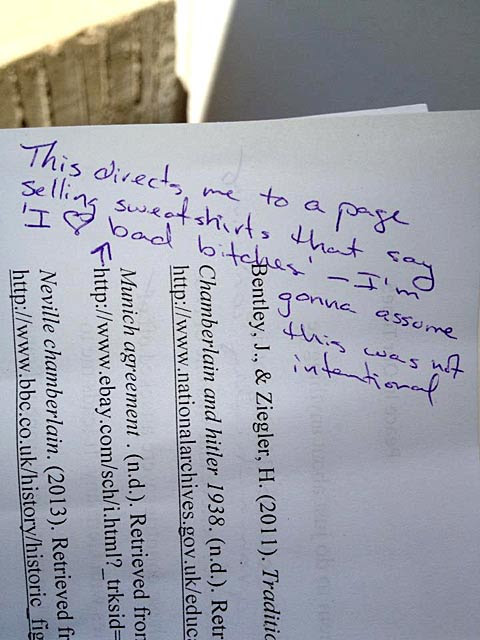 This directs me to a page
selling sweatshirts that say
'I ♡ bad bitches' – I'm
gonna assume
this was not
intentional
Bentley, J., & Ziegler, H. (2011). Traditio
Chamberlain and hitler 1938. (n.d.). Retr
http://www.nationalarchives.gov.uk/educ
Munich agreement . (n.d.). Retrieved from
http://www.ebay.com/sch/i.html?_trksid=
Neville chamberlain. (2013). Retrieved fr
http://www.bbc.co.uk/history/historic_fig